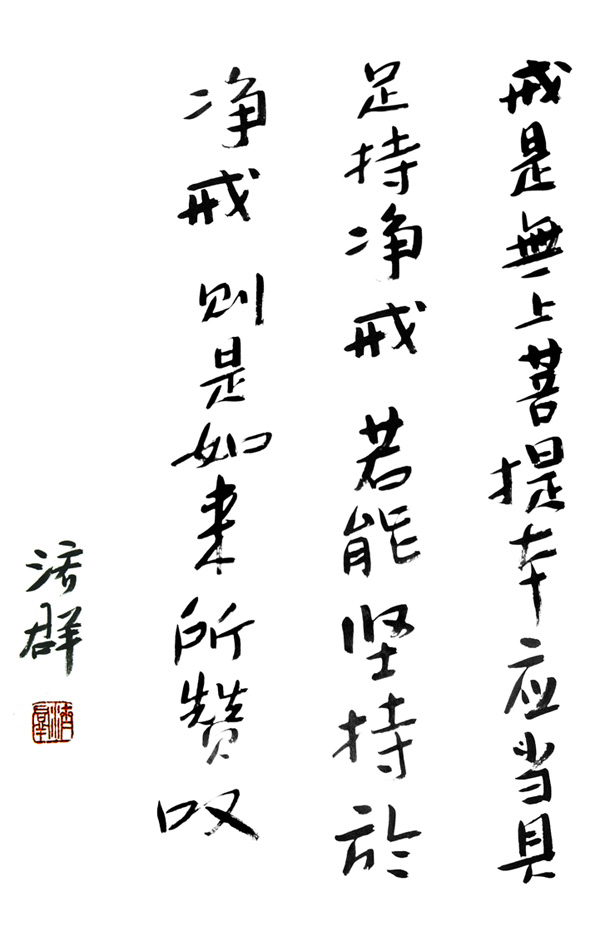 戒是無上菩提本应当具
足持净戒 若能坚持於
净戒 则是如来所赞叹
济群
济群